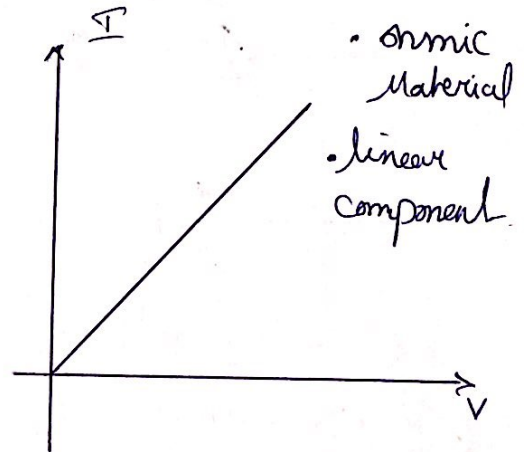 I
• ohmic
Material
• linear
component
V